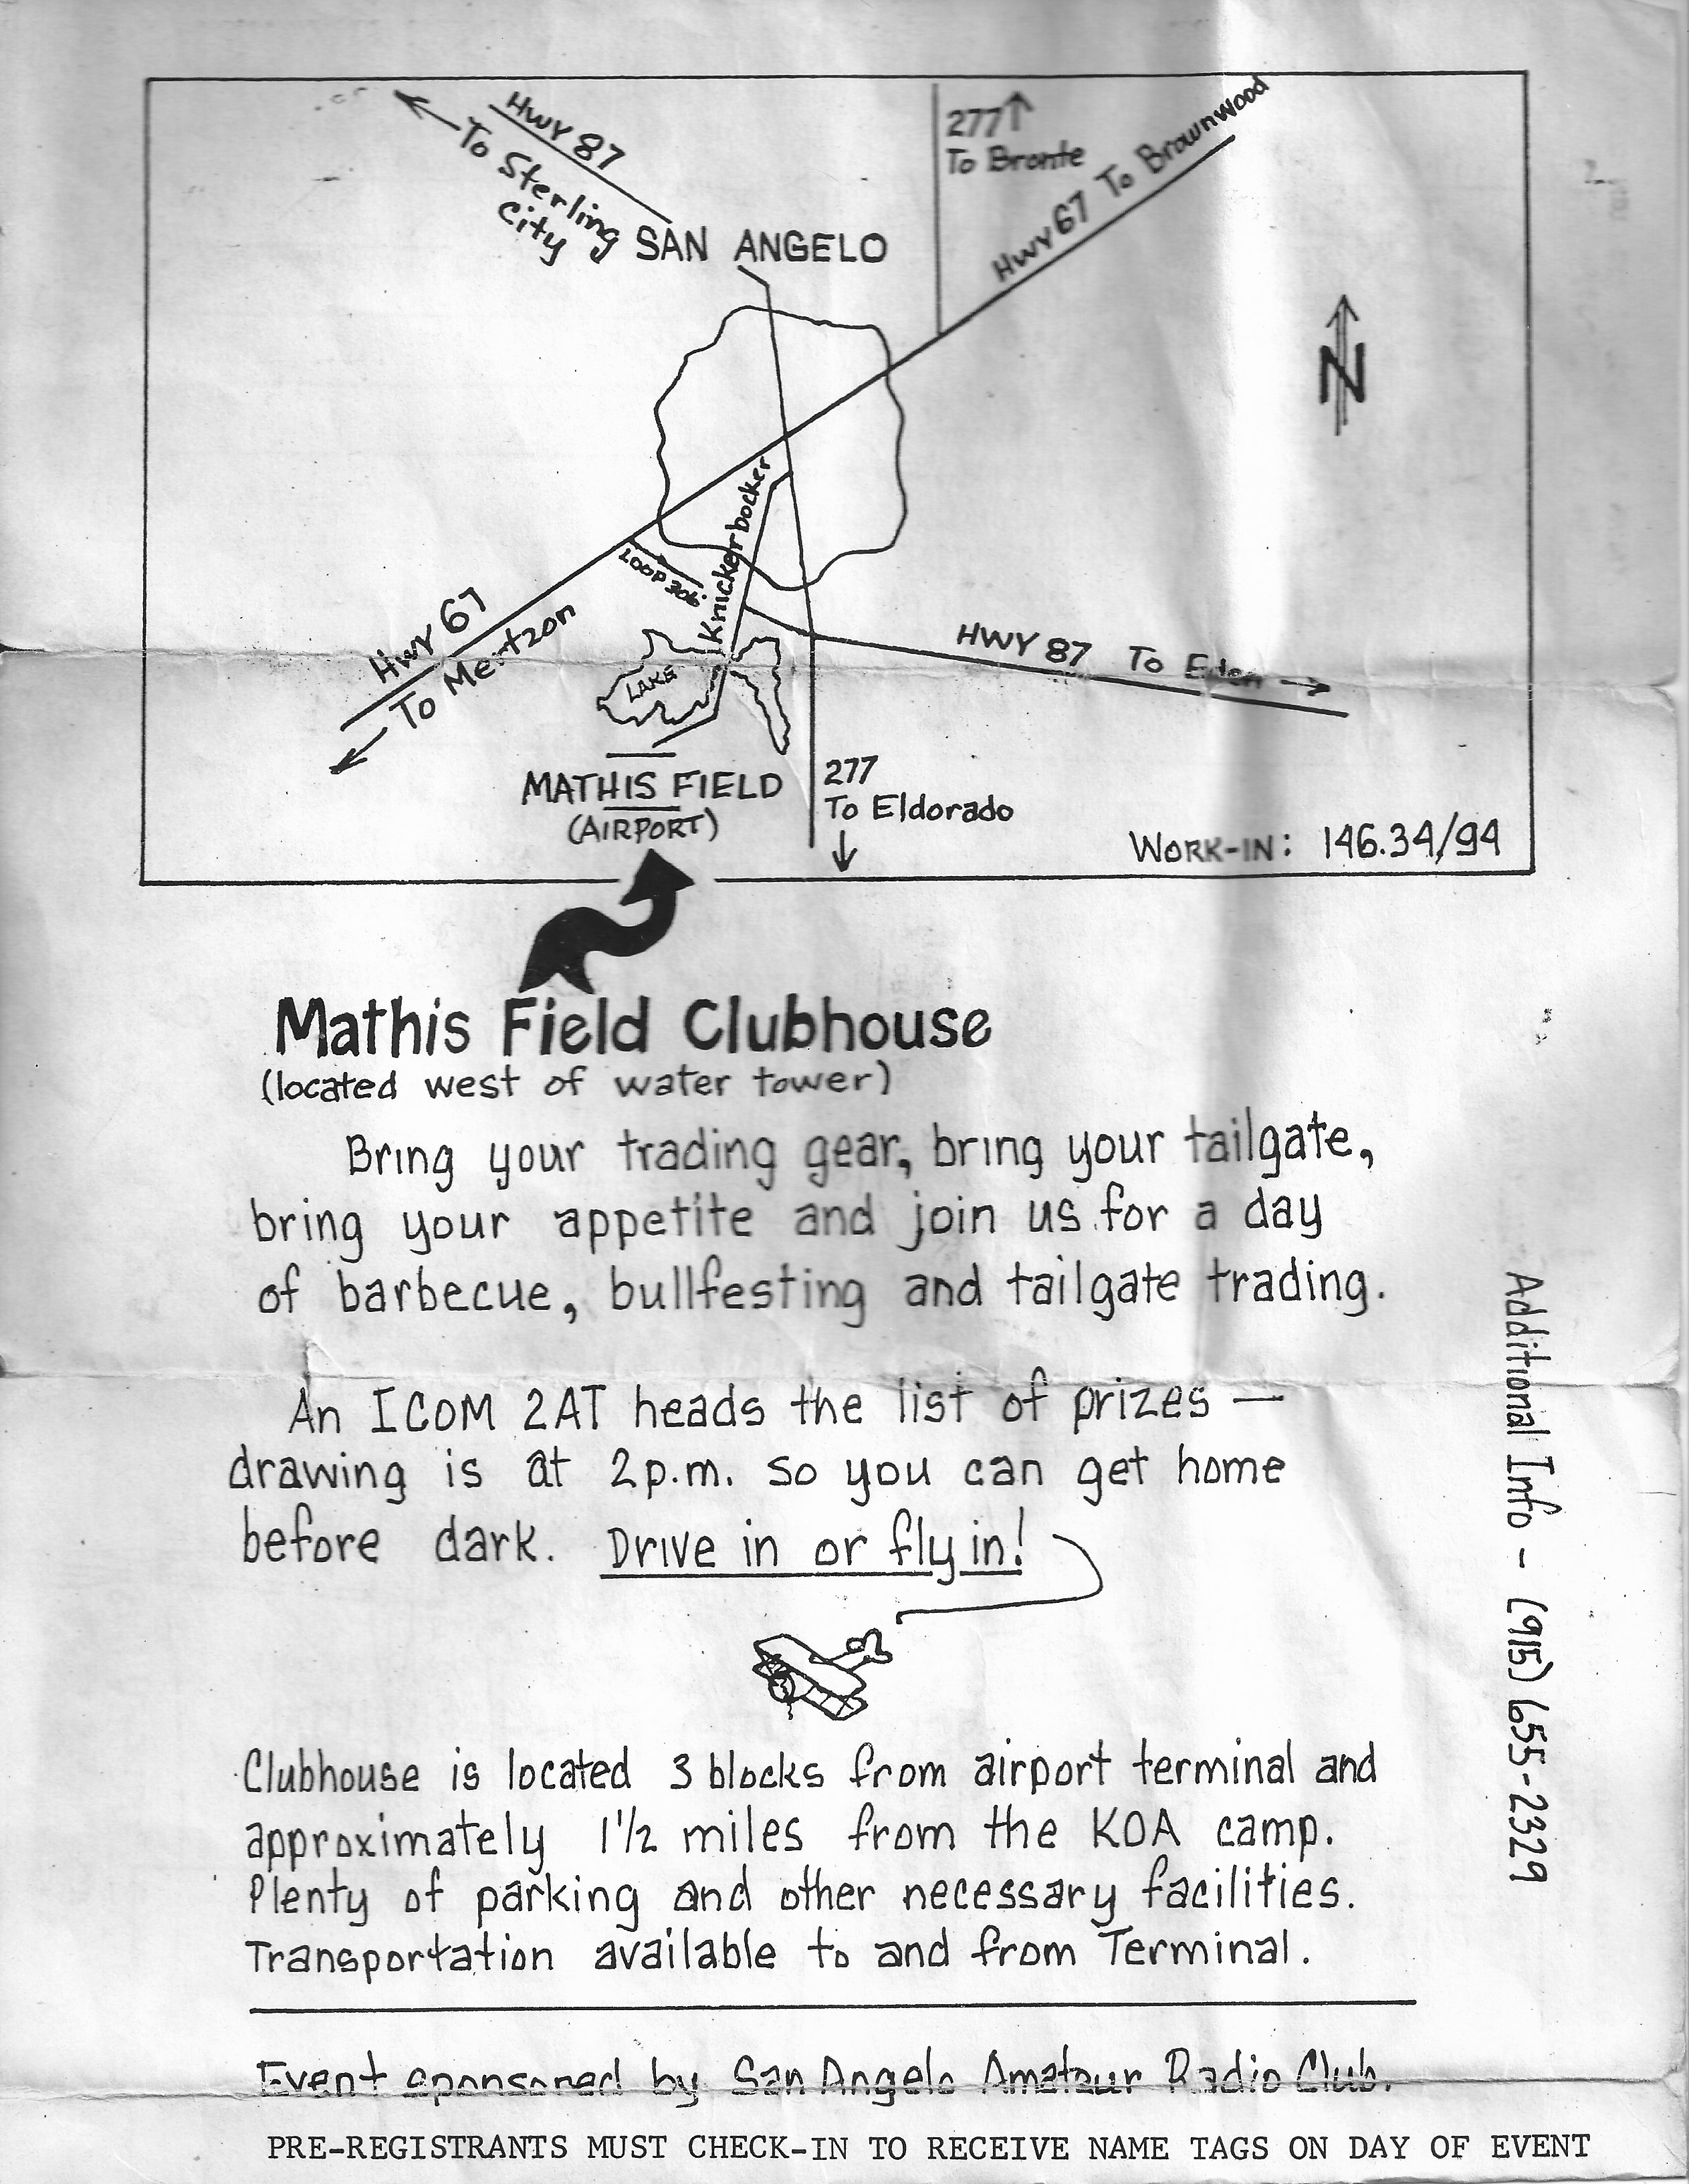 HWY 87
To Sterling
City
277
To Bronte
HWY 67 To Brownwood
SAN ANGELO
N
Knickerbocker
LOOP 306
HWY 67
To Mertzon
LAKE
HWY 87 To Eden
MATHIS FIELD
(AIRPORT)
277
To Eldorado
WORK-IN: 146.34/94
Mathis Field Clubhouse
(located west of water tower)
Bring your trading gear, bring your tailgate,
bring your appetite and join us for a day
of barbecue, bullfesting and tailgate trading.
An ICOM 2AT heads the list of prizes —
drawing is at 2p.m. so you can get home
before dark. Drive in or fly in!
Clubhouse is located 3 blocks from airport terminal and
approximately 1 1/2 miles from the KOA camp.
Plenty of parking and other necessary facilities.
Transportation available to and from Terminal.
Additional Info - (915) 655-2329
Event sponsored by San Angelo Amateur Radio Club.
PRE-REGISTRANTS MUST CHECK-IN TO RECEIVE NAME TAGS ON DAY OF EVENT